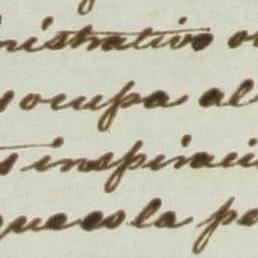 nistrativo o
ocupa al
inspiraci
que es la pe